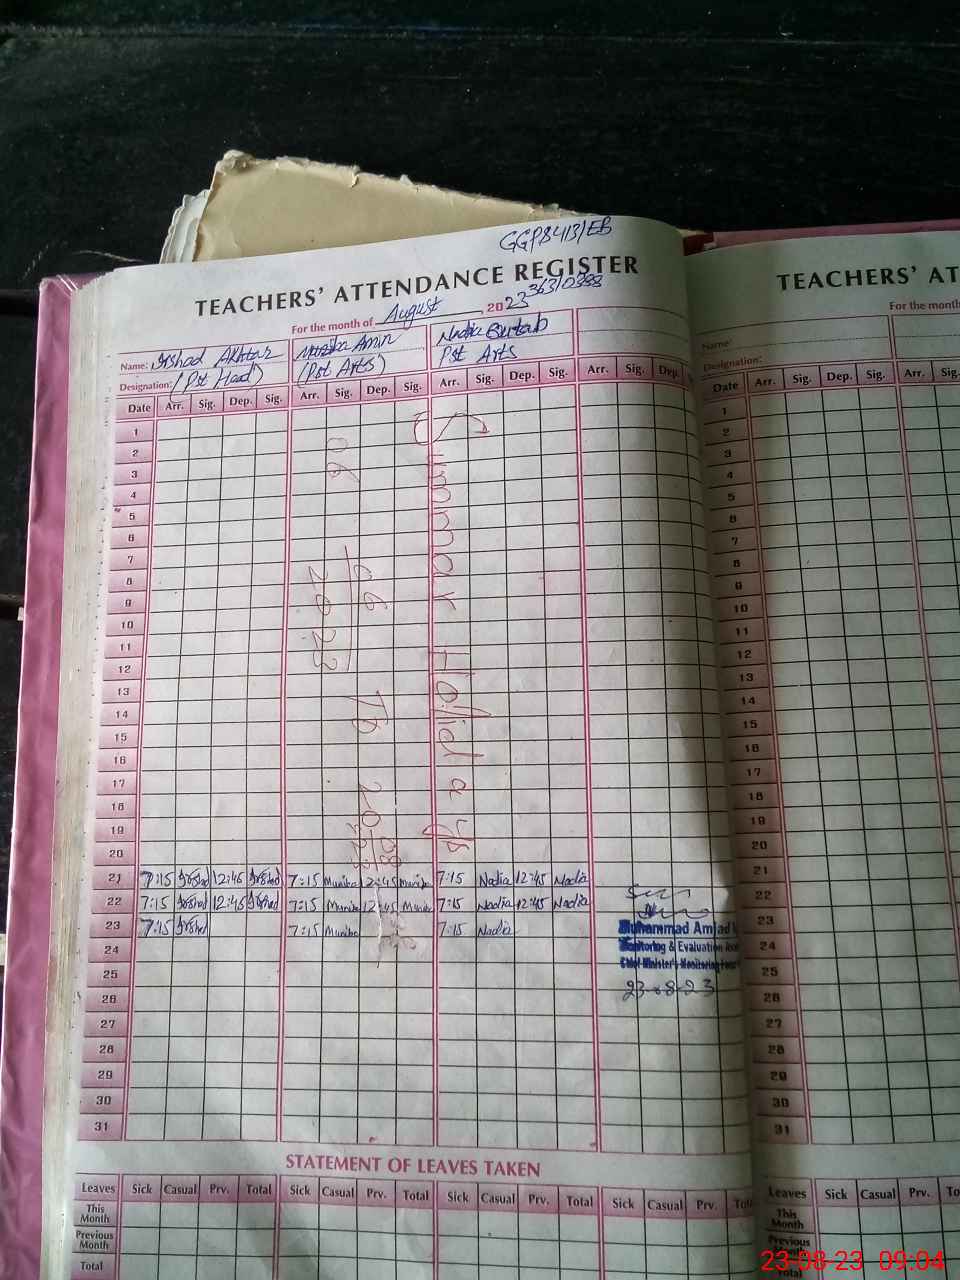 GGPS 413/EB
TEACHERS' ATTENDANCE REGISTER
For the month of August 2023
Name: Irshad Akhtar Muniba Amin Nadia
Designation: (Pst Head) (Pst Arts) Pst Arts
Date Arr. Sig. Dep. Sig. Arr. Sig. Dep. Sig. Arr. Sig. Dep. Sig. Arr. Sig. Dep.
1
2
3
4
5
6
7
8
9
10
11
12
13
14
15
16
17
18
19
20
21 7:15 Irshad 12:45 Irshad 7:15 Muniba 12:45 Muniba 7:15 Nadia 12:45 Nadia
22 7:15 Irshad 12:45 Irshad 7:15 Muniba 12:45 Muniba 7:15 Nadia 12:45 Nadia
23 7:15 Irshad 7:15 Muniba 7:15 Nadia
24
25
26
27
28
29
30
31
Summar Holidays
06
06
2023
To
20
08
23
Muhammad Amjad
Monitoring & Evaluation
Chief Minister's Monitoring
23-08-23
STATEMENT OF LEAVES TAKEN
Leaves Sick Casual Prv. Total Sick Casual Prv. Total Sick Casual Prv. Total Sick Casual Prv.
This Month
Previous Month
Total
TEACHERS' AT
For the month
Name:
Designation:
Date Arr. Sig. Dep. Sig. Arr. Sig.
1
2
3
4
5
6
7
8
9
10
11
12
13
14
15
16
17
18
19
20
21
22
23
24
25
26
27
28
29
30
31
Leaves Sick Casual Prv.
This Month
Previous Month
Total
23-08-23 09:04